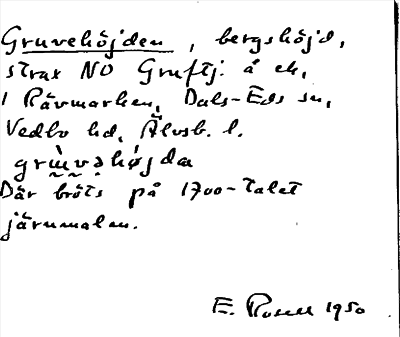 Gruvehöjden, bergshöjd,
strax NO Gruftj. å ek,
i Rävmarken, Dals-Eds sn,
Vedbo hd, Älvsb. l.
grùvəhø̀jda
Där bröts på 1700-talet
järnmalm.
E. Rosell 1950